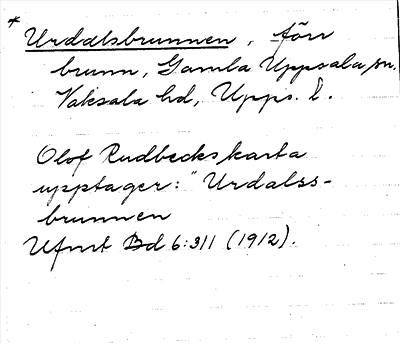 * Urdalsbrunnen, förr
brunn, Gamla Uppsala sn.
Vaksala hd, Upps. l.
Olof Rudbecks karta
upptager: "Urdalss-
brunnen
Ufmt Bd 6:311 (1912).